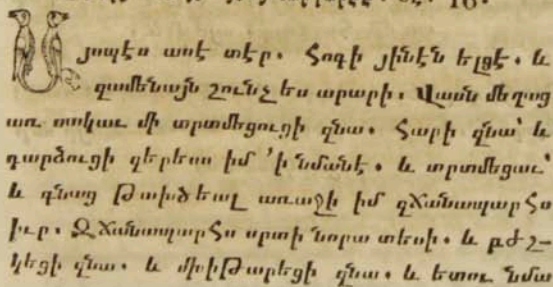 Այսպէս ասէ տէր. Հոգի յինէն ելցէ. և
զամենայն շունչ ես արարի. Վասն մեղաց
առ սակաւ մի տրտմեցուցի զնա. Հարի զնա՝ և
դարձուցի զերեսս իմ ՚ի նմանէ. և տրտմեցաւ՝
և գնաց Թախծեալ առաջի իմ զՃանապարՀս
իւր. ԶՃանապարՀս սրտի նորա տեսի. և բժշ-
կեցի զնա. և միխիԹարեցի զնա. և ետու նմա